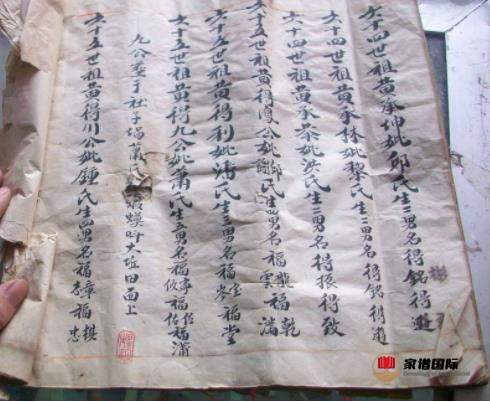 六十四世祖黄承坤妣邱氏生二男名得銘得進
六十四世祖黄承林妣黎氏生二男名得銘得進
六十四世祖黄承茶妣洪氏生二男名得振得致
六十五世祖黄得鳳公妣邱謝氏生四男名福龍福乾福雲福滿
六十五世祖黄得利妣潘氏生三男名福全福堂福岑
六十五世祖黄得九公妣蕭氏生五男名福亭福任福攸福佑福浦
九公葬于社子塭蕭氏 大垃田面上
六十五世祖黄得川公妣鍾氏生四男名福章福棋福志福忠
家谱国际
Genealogy of International